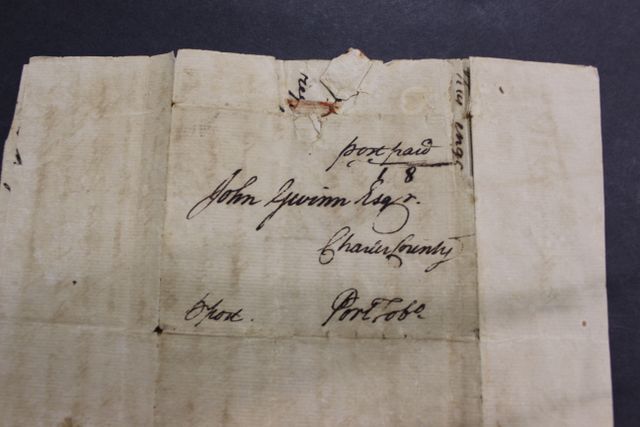 post paid
1 8
John Gwinn Esqr.
Charles County
Port Tobo.
post.